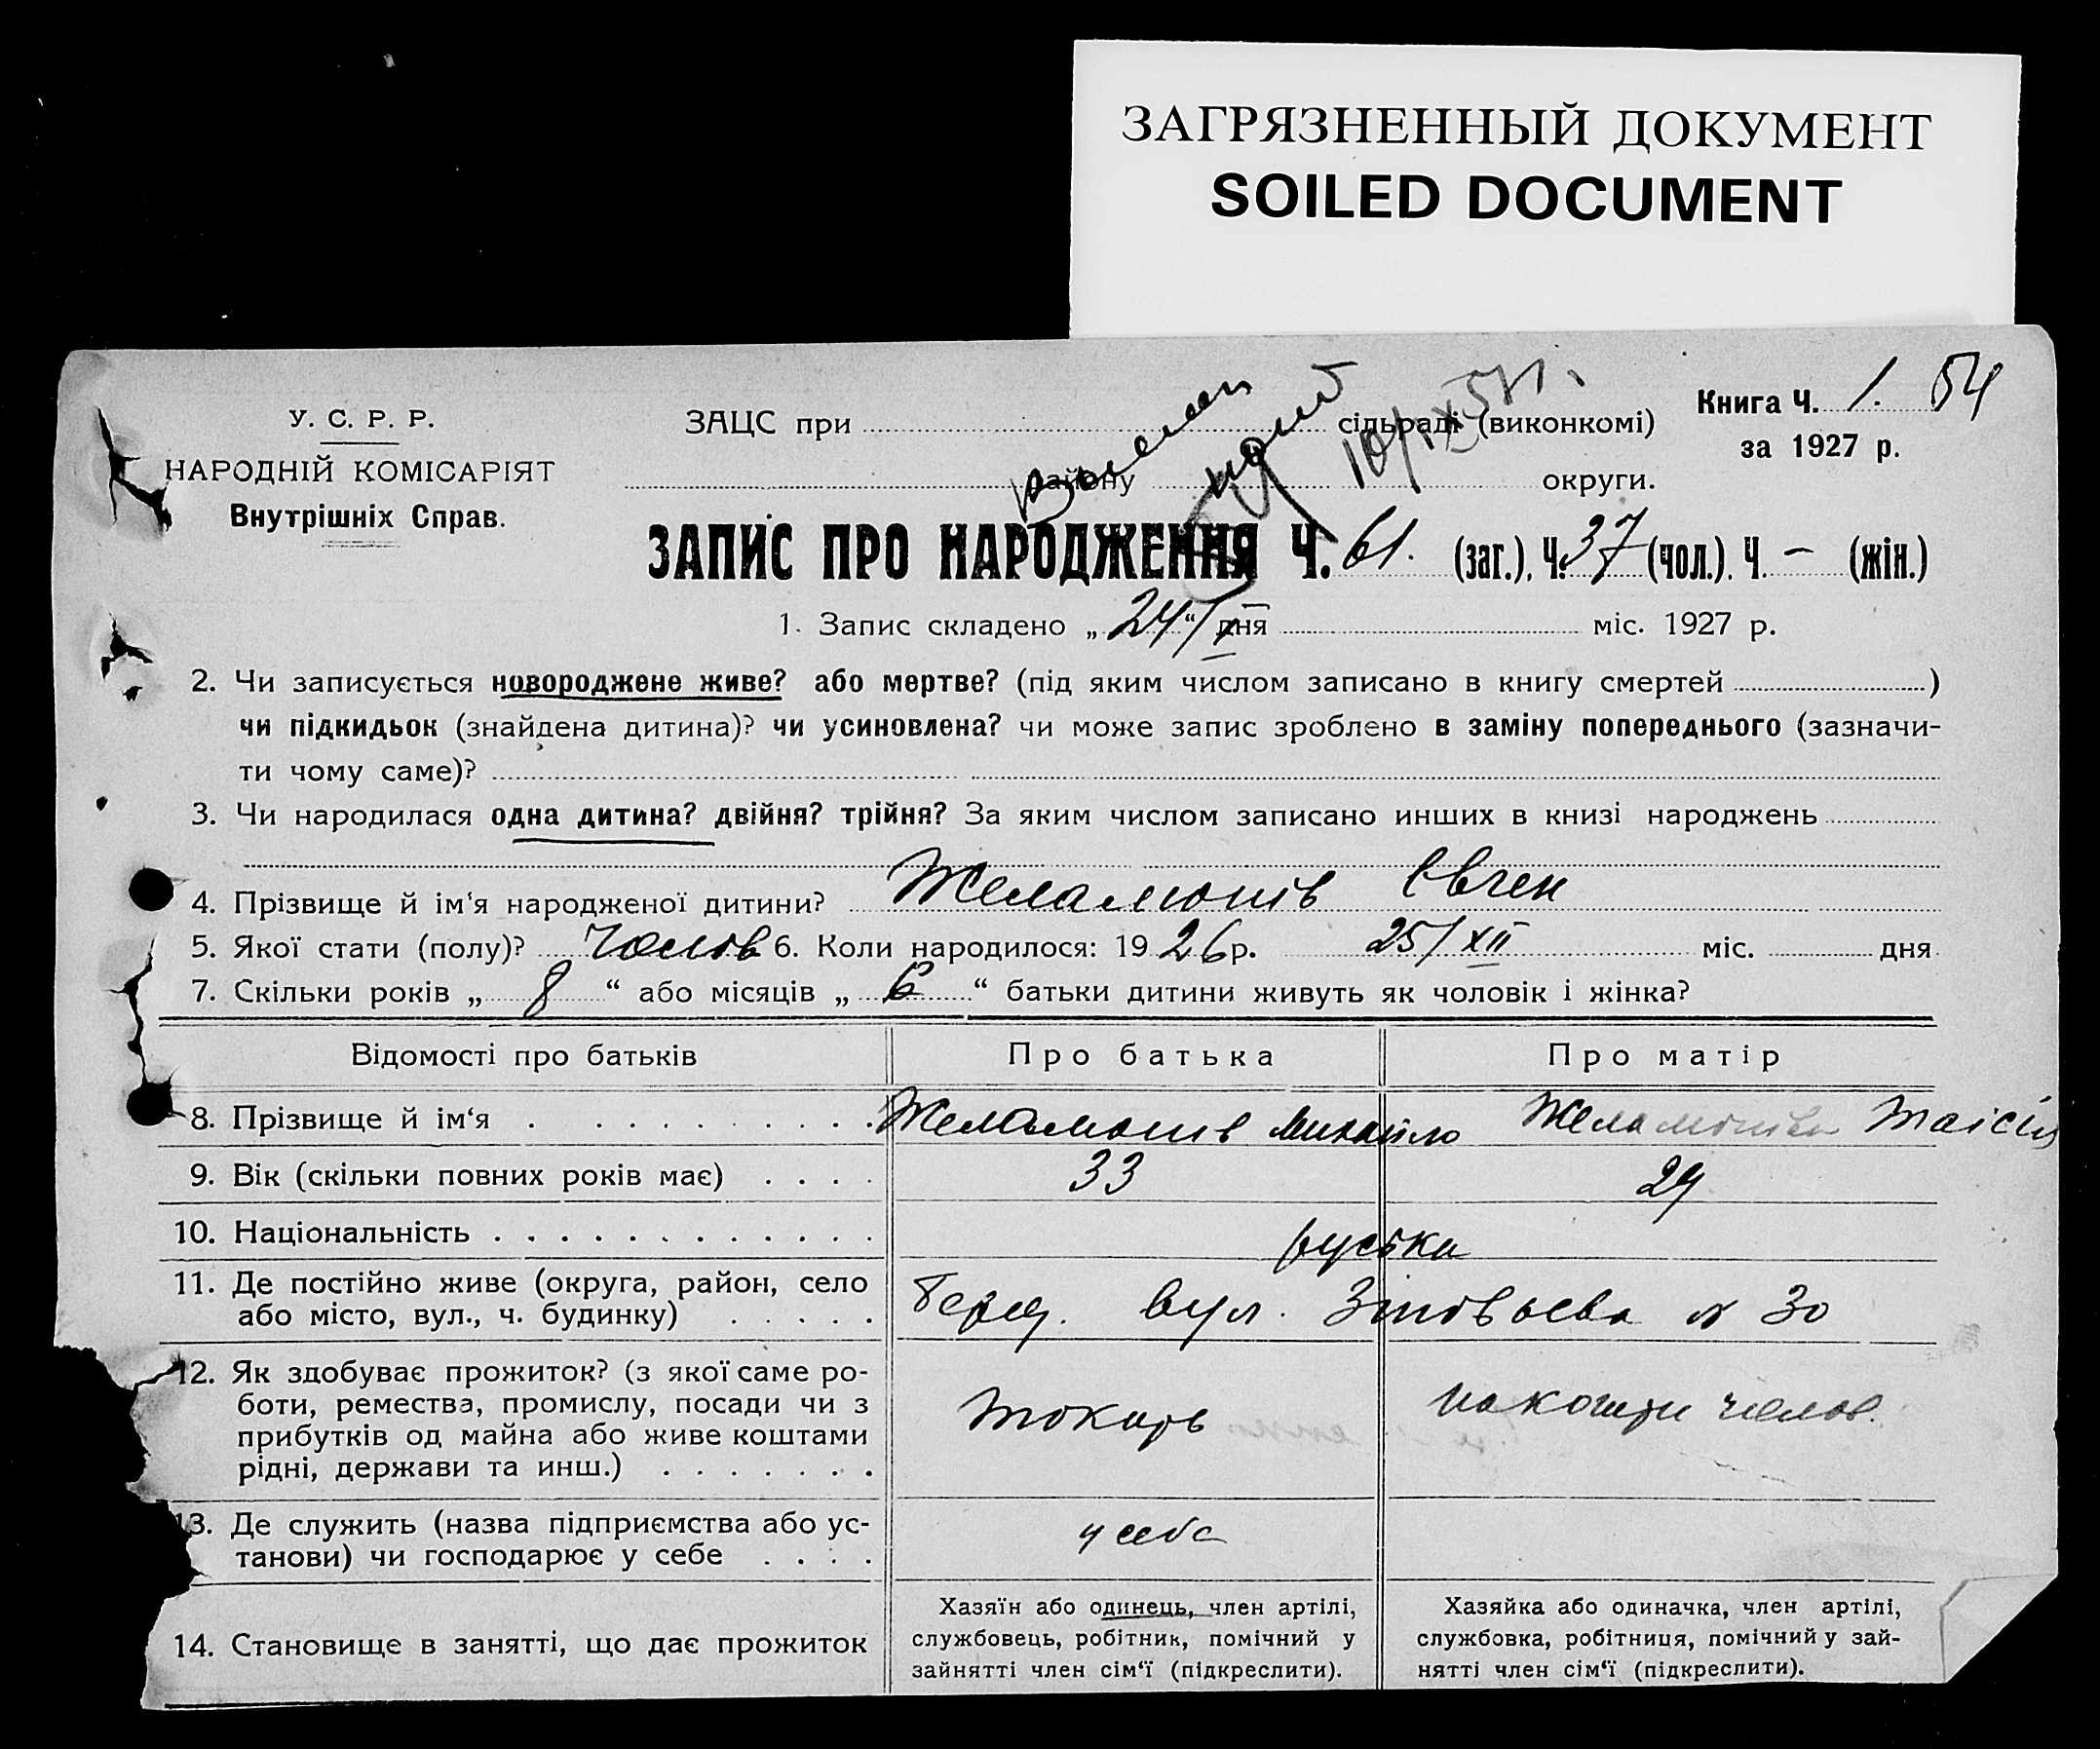 ЗАГРЯЗНЕННЫЙ ДОКУМЕНТ
SOILED DOCUMENT
Книга Ч. 1. 54
за 1927 р.
У. С. Р. Р.
НАРОДНІЙ КОМІСАРІЯТ
Внутрішніх Справ.
ЗАЦС при сільраді (виконкомі)
району округи.
10/IX
ЗАПИС ПРО НАРОДЖЕННЯ Ч. 61. (заг.), Ч. 37 (чол.). Ч. – (жін.)
1. Запис складено „ 24/I “ дня міс. 1927 р.
2. Чи записується новороджене живе? або мертве? (під яким числом записано в книгу смертей )
чи підкидьок (знайдена дитина)? чи усиновлена? чи може запис зроблено в заміну попереднього (зазначи-
ти чому саме)?
3. Чи народилася одна дитина? двійня? трійня? За яким числом записано инших в книзі народжень
4. Прізвище й ім'я народженої дитини? Желамонів Євген
5. Якої стати (полу)? Чолов 6. Коли народилося: 1926р. 25/XII міс. дня
7. Скільки років „ 8 “ або місяців „ 6 “ батьки дитини живуть як чоловік і жінка?
Відомості про батьків Про батька Про матір
8. Прізвище й ім'я Желамонів Михайло Желамонівa Таісія
9. Вік (скільки повних років має) 33 29
10. Національність руська
11. Де постійно живе (округа, район, село
або місто, вул., ч. будинку) вул. Зіновьева № 30
12. Як здобуває прожиток? (з якої саме ро-
боти, ремества, промислу, посади чи з
прибутків од майна або живе коштами
рідні, держави та инш.) токарь на кошти чолов.
13. Де служить (назва підприємства або ус-
танови) чи господарює у себе у себе
14. Становище в занятті, що дає прожиток
Хазяїн або одинець, член артілі,
службовець, робітник, помічний у
зайнятті член сім'ї (підкреслити).
Хазяйка або одиначка, член артілі,
службовка, робітниця, помічний у зай-
нятті член сім'ї (підкреслити).